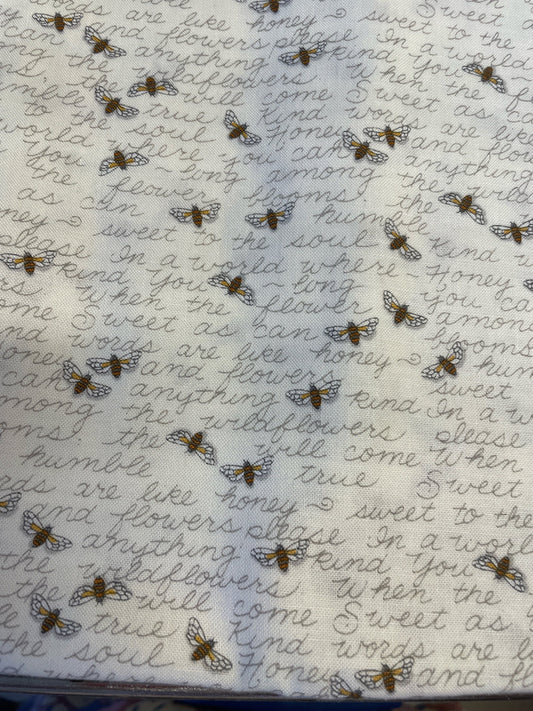 words are like honey ~ sweet to the
can and flowers please In a world
anything kind You
the wildflowers When the
humble will come Sweet as
to the true Kind words are
world soul Honey can and
where You can anything
You ~ long among the
the flower blooms humble
as can sweet to the soul Kind
honey ~ In a world where Honey
please kind You ~ long You
When the flower among
come Sweet as can blooms
Kind words are like honey ~ hum
Honey and flowers please sweet
can anything kind In a w
among the wildflowers please
blooms will come When
humble true Sweet
words are like honey ~ sweet to the
and flowers please In a world
anything kind You
the wildflowers When the
the will come Sweet as
true Kind words are
the soul Honey and flo
where